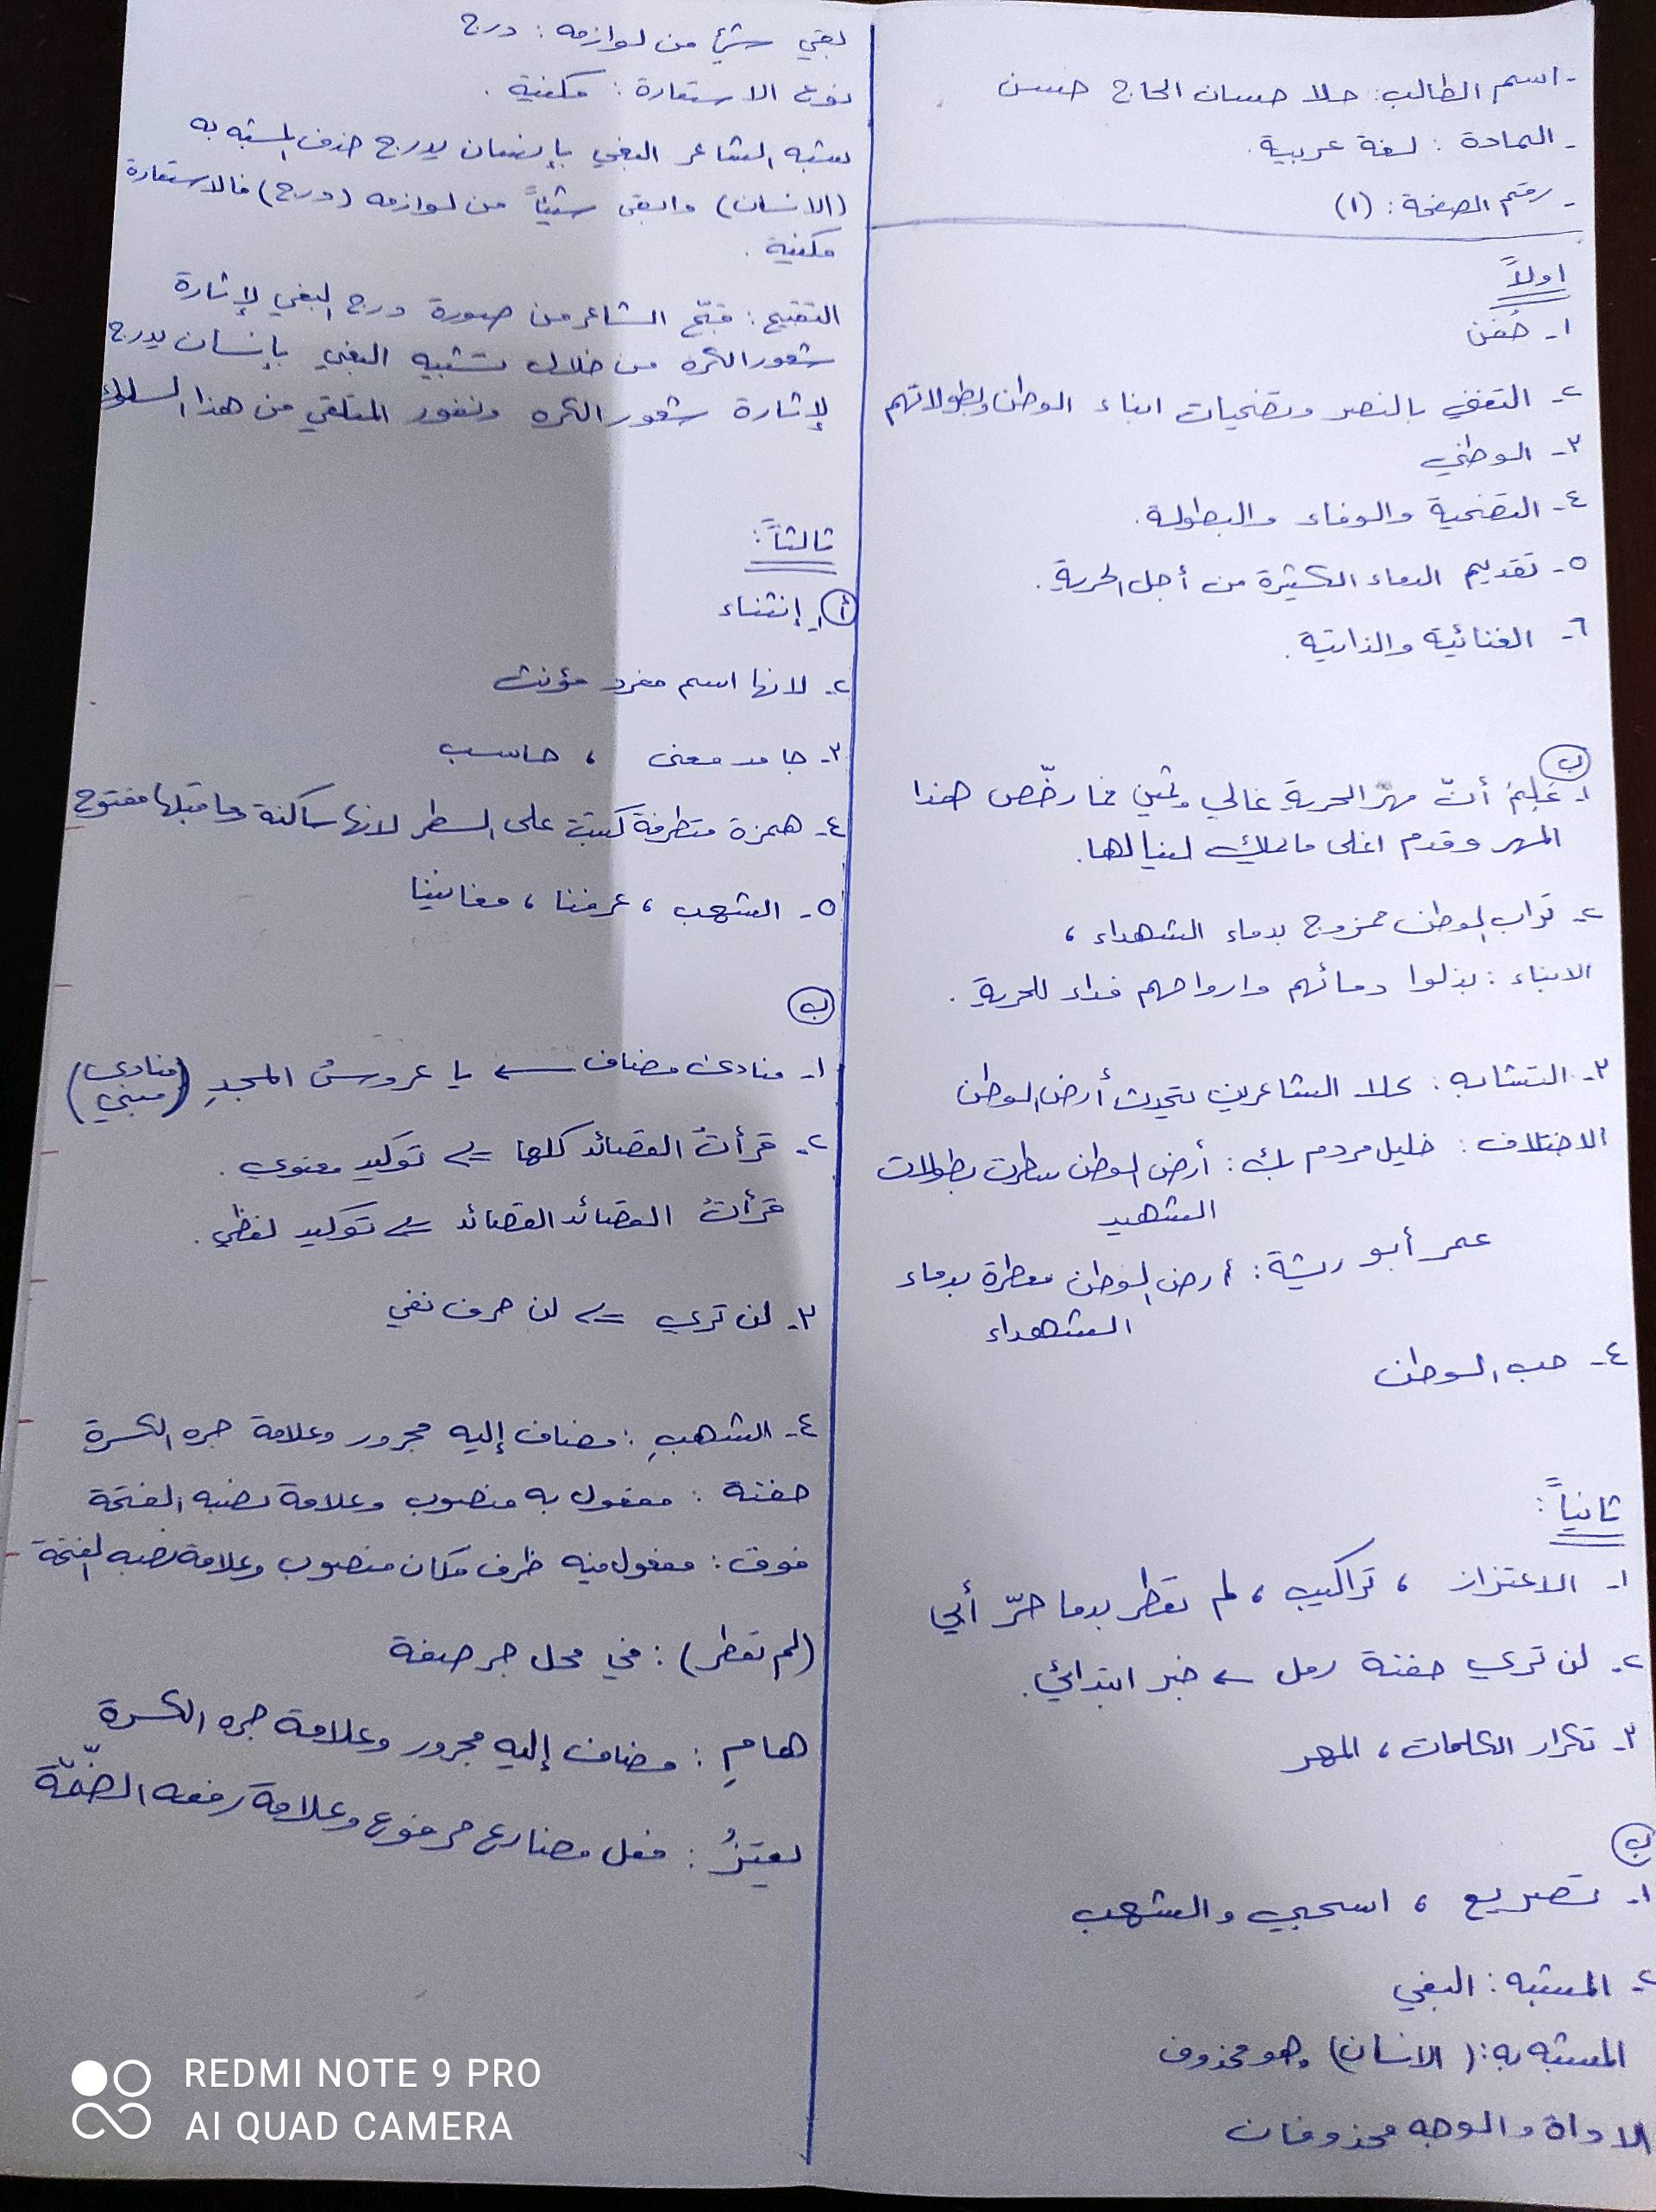 - اسم الطالب: حلا حسان الحاج حسن
- المادة : لغة عربية.
- رقم الصفحة: (١)
اولاً
١- حُفَن
٢- التغني بالنصر وتضحيات ابناء الوطن وبطولاتهم
٣- الوطني
٤- التضحية والوفاء والبطولة.
٥- تقديم الدماء الكثيرة من أجل الحرية.
٦- الغنائية والذاتية.
ب
١- عَلِمَ أنّ مهر الحرية غالي وثمين فما رخّص هذا
المهر وقدم اغلى ما يملك لينالها.
٢- تراب الوطن ممزوج بدماء الشهداء ،
الابناء : بذلوا دمائهم وارواحهم فداء للحرية.
٣- التشابه : كلا الشاعرين تحدث أرض الوطن
الاختلاف : خليل مردم بك : أرض الوطن سطرت بطولات
الشهيد
عمر أبو ريشة : أرض الوطن معطرة بدماء
الشهداء
٤- حب الوطن
ثانياً :
١- الاعتزاز ، تراكيب ، لم تعطر بدما حرّ أبي
٢- لن تري حفنة رمل ← خبر ابتدائي.
٣- تكرار الكلمات ، المهر
ب
١- تصريع ، اسحبي والشهب
٢- المشبه : البغي
المشبه به : (الانسان) وهو محذوف
الاداة والوجه محذوفان
بقي شيئ من لوازمه : درج
نوع الاستعارة : مكنية .
شبه الشاعر البغي بإنسان يدرج حذف المشبه به
(الانسان) وابقى شيئاً من لوازمه (درج) فالاستعارة
مكنية .
التقبيح : قبّح الشاعر من صورة درج البغي لإثارة
شعور الكره من خلال تشبيه البغي بإنسان يدرج
لإثارة شعور الكره ونفور المتلقي من هذا السلوك
ثالثاً :
أ ١- إنتثناء
٢- لانها اسم مفرد مؤنث
٣- جامد معنى ، حاسب
٤- همزة متطرفة كتبت على السطر لانها ساكنة وما قبلها مفتوح
٥- الشهب ، عرفنا ، مغانينا
ب
١- منادى مضاف ← يا عروسُ المجدِ (منادى مبني)
٢- قرأتُ القصائد كلها ⇐ توكيد معنوي .
قرأتُ القصائد القصائد ⇐ توكيد لفظي .
٣- لن تري ⇐ لن حرف نفي
٤- الشهبِ : مضاف إليه مجرور وعلامة جره الكسرة
حفنة : مفعول به منصوب وعلامة نصبه الفتحة
فوق : مفعول فيه ظرف مكان منصوب وعلامة نصبه الفتحة
(لم تعطر) : في محل جر صفة
هامِ : مضاف إليه مجرور وعلامة جره الكسرة
يعتزُ : فعل مضارع مرفوع وعلامة رفعه الضّمّة
REDMI NOTE 9 PRO
AI QUAD CAMERA